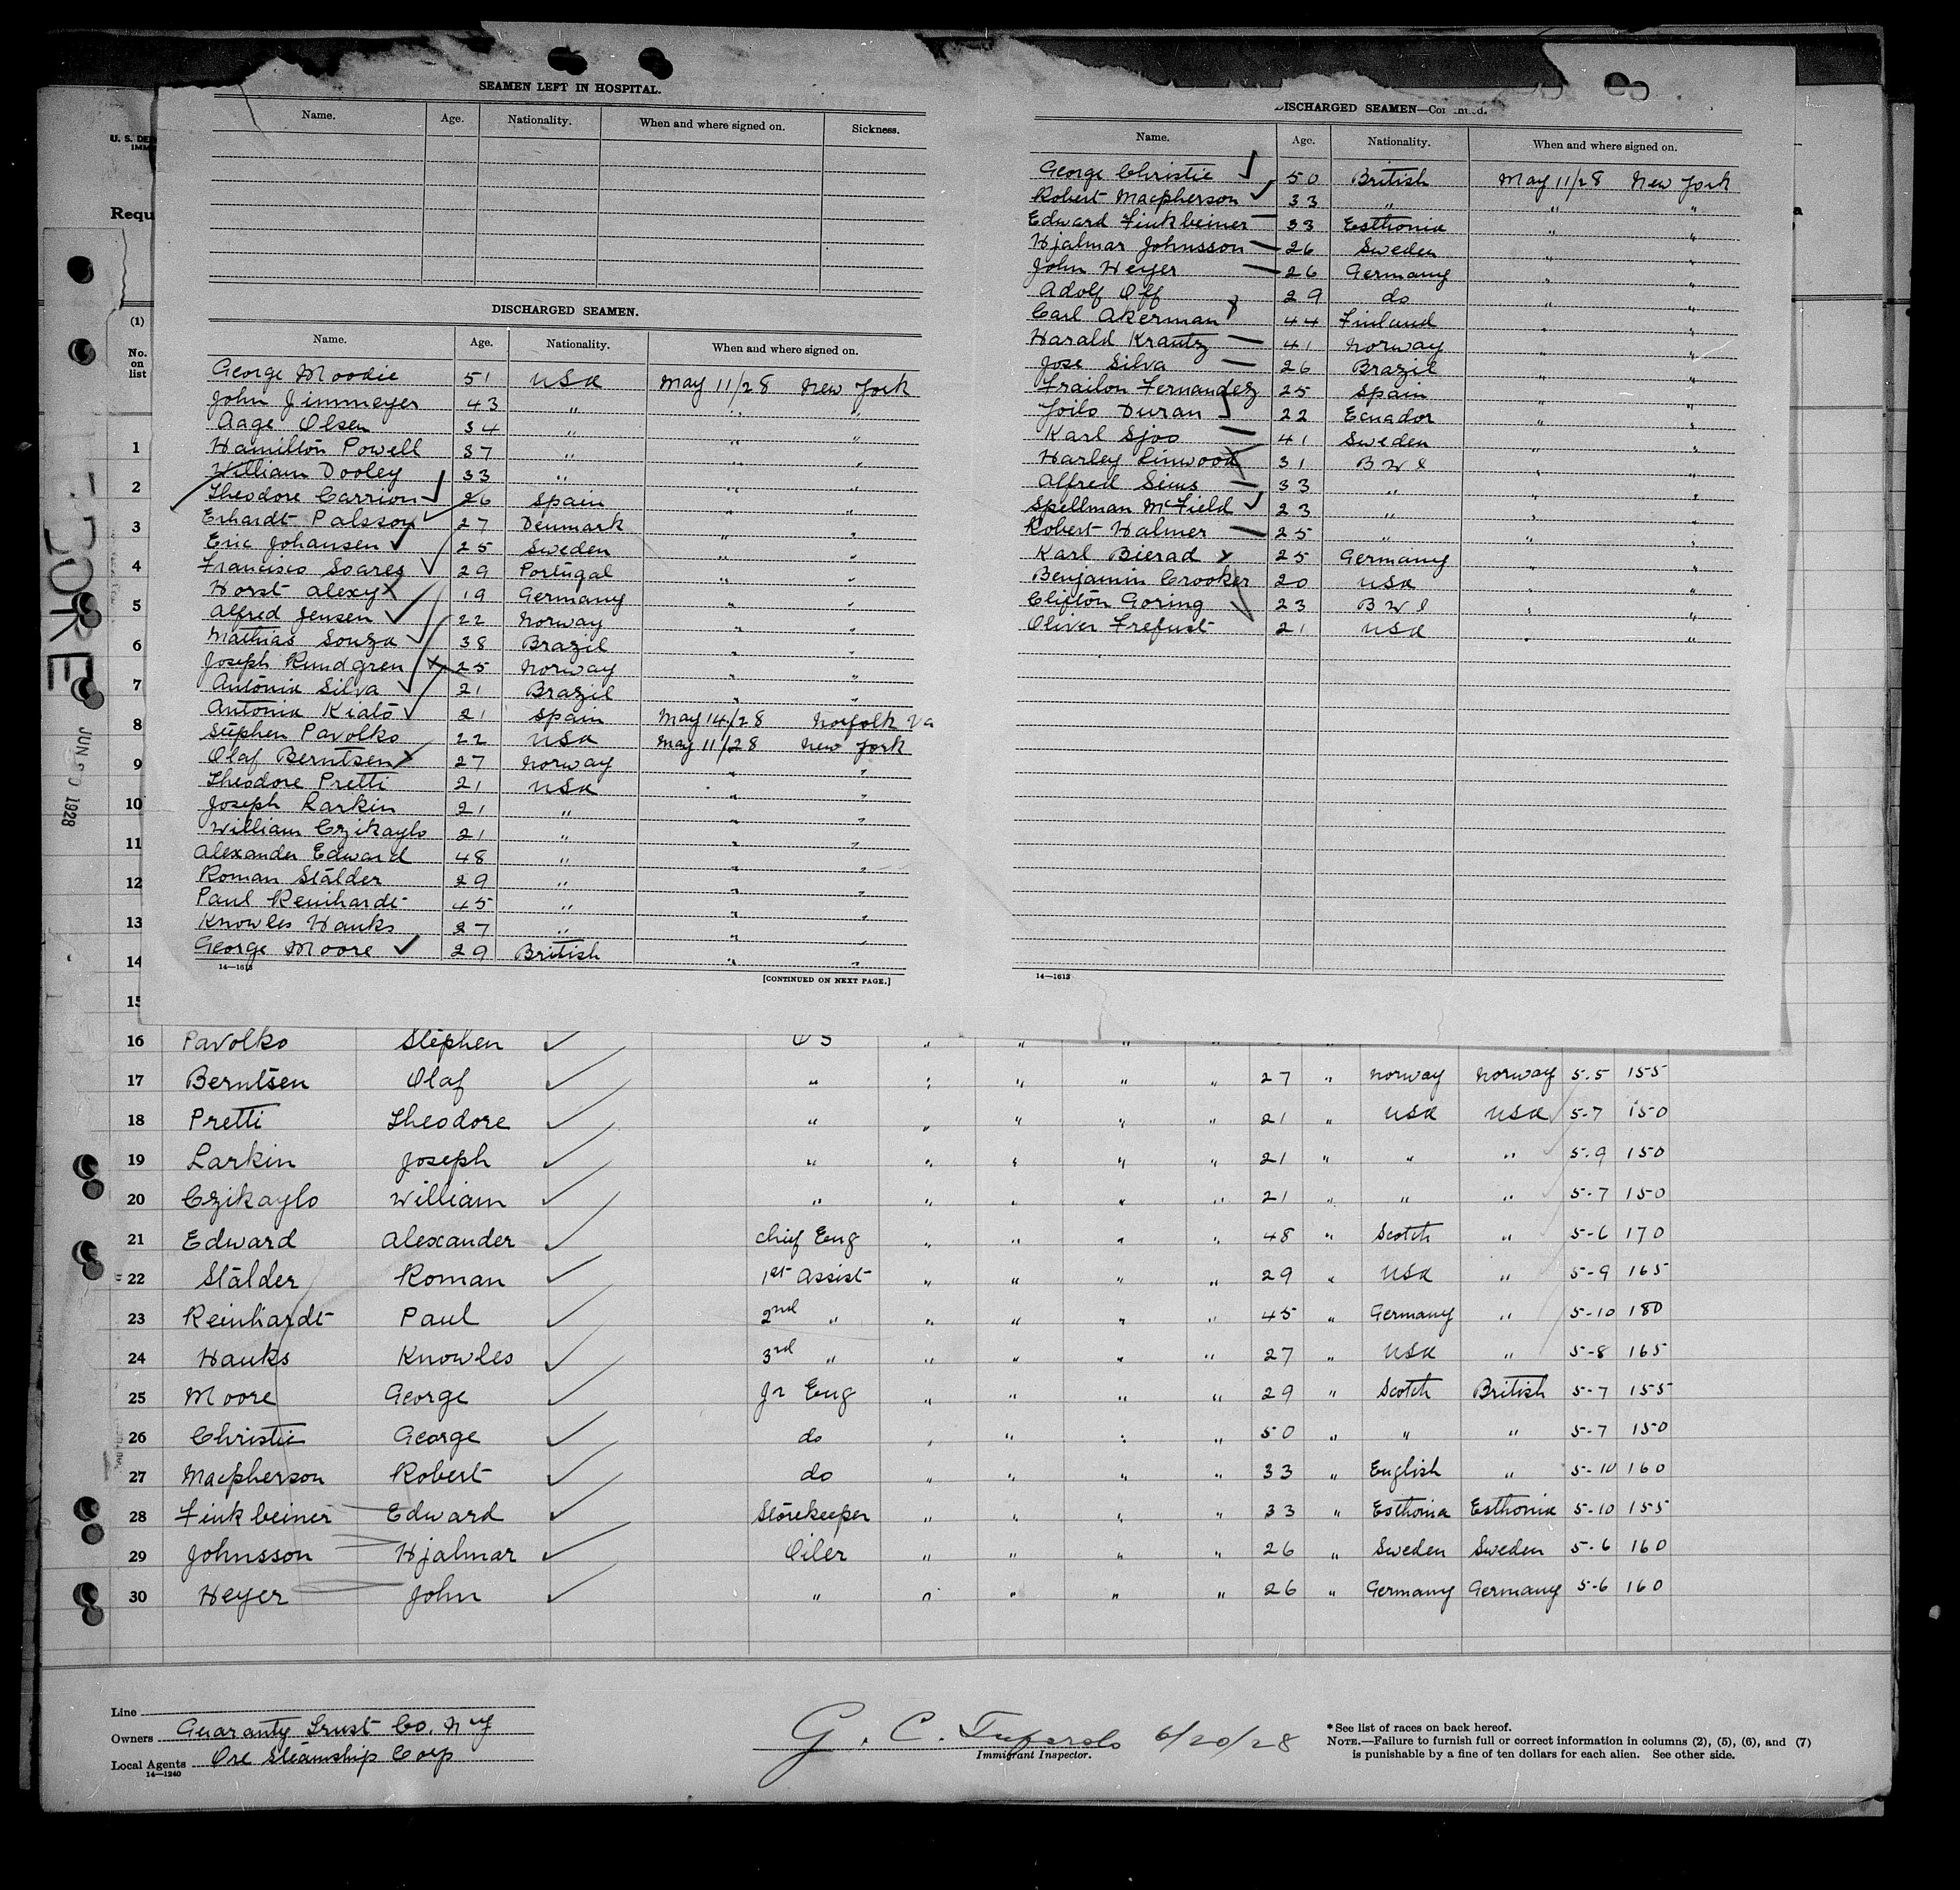 SEAMEN LEFT IN HOSPITAL.
Name. Age. Nationality. When and where signed on. Sickness.
DISCHARGED SEAMEN.
Name. Age. Nationality. When and where signed on.
George Moodie 51 USA May 11/28 New York
John Jimmeyer 43 " " "
Aage Olsen 34 " " "
Hamilton Powell 37 " " "
William Dooley 33 " " "
Theodore Carrion 26 Spain " "
Erhardt Palsson 27 Denmark " "
Eric Johansen 25 Sweden " "
Francisco Soares 29 Portugal " "
Horst Alexy 19 Germany " "
Alfred Jensen 22 Norway " "
Mathias Souza 38 Brazil " "
Joseph Rundgren 25 Norway " "
Antonia Silva 21 Brazil " "
Antonia Kialo 21 Spain May 14/28 Norfolk Va
Stephen Pavolko 22 USA May 11/28 New York
Olaf Berntsen 27 Norway " "
Theodore Pretti 21 USA " "
Joseph Larkin 21 " " "
William Czikaylo 21 " " "
Alexander Edward 48 " " "
Roman Stalder 29 " " "
Paul Reinhardt 45 " " "
Knowles Hanks 27 " " "
George Moore 29 British " "
14—1613
[CONTINUED ON NEXT PAGE.]
DISCHARGED SEAMEN—Continued.
Name. Age. Nationality. When and where signed on.
George Christie 50 British May 11/28 New York
Robert Macpherson 33 " " "
Edward Finkbeiner 33 Esthonia " "
Hjalmar Johnsson 26 Sweden " "
John Heyer 26 Germany " "
Adolf Off 29 do " "
Carl Akerman 44 Finland " "
Harald Krantz 41 Norway " "
Jose Silva 26 Brazil " "
Frailon Fernandez 25 Spain " "
Joilo Duran 22 Ecuador " "
Karl Sjoo 41 Sweden " "
Harley Linwood 31 B W I " "
Alfred Seins 33 " " "
Spellman McField 23 " " "
Robert Halmer 25 " " "
Karl Bierad 25 Germany " "
Benjamin Crooker 20 USA " "
Clifton Goring 23 B W I " "
Oliver Trefust 21 USA " "
14—1613
U. S. DE
IMM
Requ
(1)
No. on list
1
2
3
4
5
6
7
8
9
10
11
12
13
14
15
ORE
JUN 20 1928
16 Pavolko Stephen OS " " " "
17 Berntsen Olaf " " " " " 27 " Norway Norway 5.5 155
18 Pretti Theodore " " " " " 21 " USA USA 5-7 150
19 Larkin Joseph " " " " " 21 " " " 5.9 150
20 Czikaylo William " " " " " 21 " " " 5-7 150
21 Edward Alexander chief Eng " " " " 48 " Scotch " 5-6 170
22 Stalder Roman 1st Assist " " " " 29 " USA " 5-9 165
23 Reinhardt Paul 2nd " " " " " 45 " Germany " 5-10 180
24 Hanks Knowles 3rd " " " " " 27 " USA " 5-8 165
25 Moore George Jr Eng " " " " 29 " Scotch British 5-7 155
26 Christie George do " " " " 50 " " " 5-7 150
27 Macpherson Robert do " " " " 33 " English " 5-10 160
28 Finkbeiner Edward Storekeeper " " " " 33 " Esthonia Esthonia 5-10 155
29 Johnsson Hjalmar Oiler " " " " 26 " Sweden Sweden 5-6 160
30 Heyer John " " " " " 26 " Germany Germany 5-6 160
Line
Owners Guaranty Trust Co. N Y
Local Agents Ore Steamship Corp
14—1240
G. C. 6/20/28
Immigrant Inspector.
*See list of races on back hereof.
NOTE.—Failure to furnish full or correct information in columns (2), (5), (6), and (7)
is punishable by a fine of ten dollars for each alien. See other side.